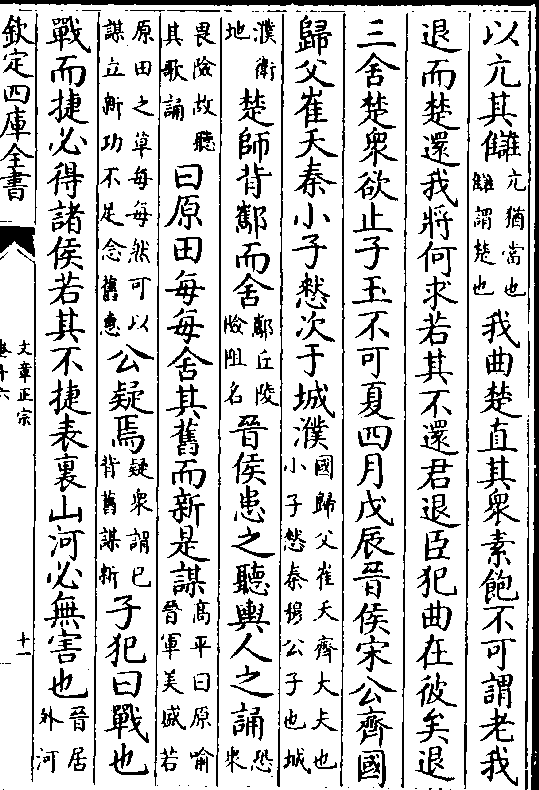 以亢其讎亢猶當也讎謂楚也我曲楚直其衆素飽不可謂老我
退而楚還我將何求若其不還君退臣犯曲在彼矣退
三舍楚衆欲止子玉不可夏四月戊辰晉侯宋公齊國
歸父崔夭秦小子憖次于城濮國歸父崔夭齊大夫也小子憖秦穆公子也城
濮衛地楚師背酅而舍酅丘陵險阻名晉侯患之聽輿人之誦恐衆
畏險故聽其歌誦曰原田每每舍其舊而新是謀髙平曰原喻晉軍美盛若
原田之草每每然可以謀立新功不足念舊惠公疑焉疑衆謂已背舊謀新子犯曰戰也
戰而捷必得諸侯若其不捷表裏山河必無害也晉居外河
欽定四庫全書
文章正宗
十一